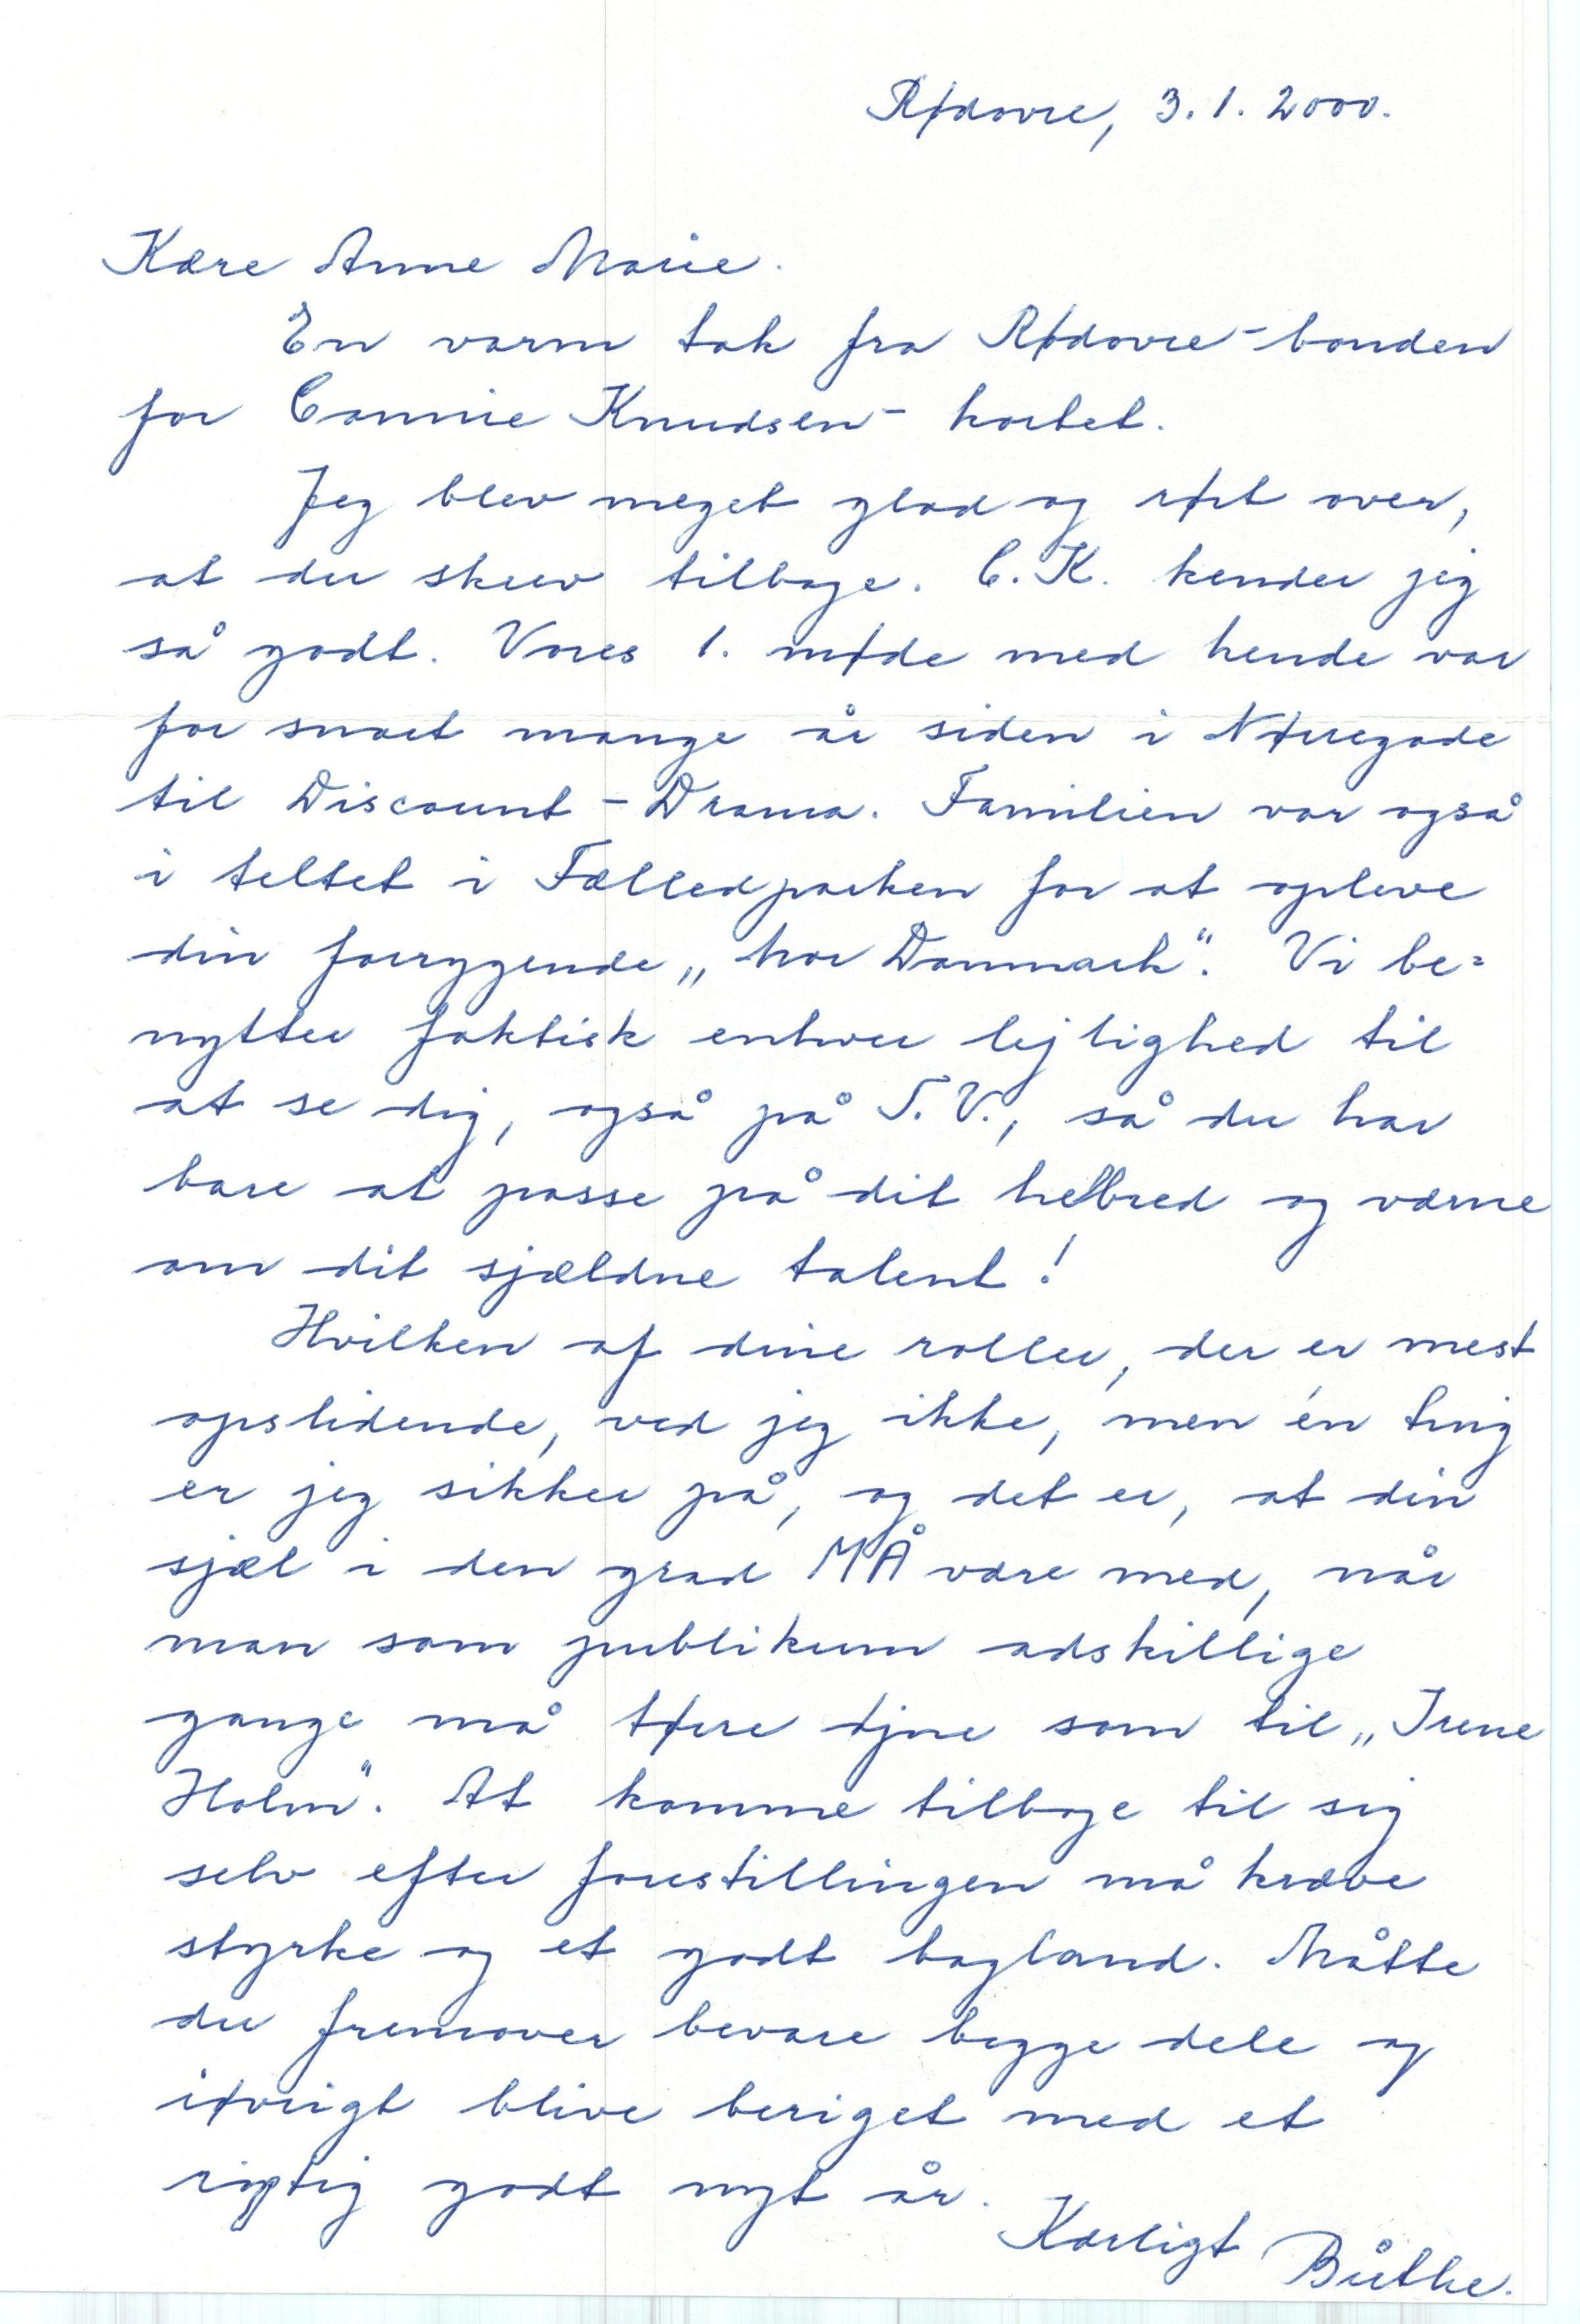 Rødovre, 3.1.2000.
Kære Anne Marie.
En varm tak fra Rødovre-bonden
for Connie Knudsen-kortet.
Jeg blev meget glad og rørt over,
at du skrev tilbage. C.K. kender jeg
så godt. Vores 1. møde med hende var
for snart mange år siden i Nørregade
til Discount-Drama. Familien var også
i teltet i Fælledparken for at opleve
din forrygende „hor Danmark“. Vi be=
nytter faktisk enhver lejlighed til
at se dig, også på T.V., så du har
bare at passe på dit helbred og værne
om dit sjældne talent!
Hvilken af dine roller, der er mest
opslidende, ved jeg ikke, men én ting
er jeg sikker på, og det er, at din
sjæl i den grad MÅ være med, når
man som publikum adskillige
gange må tørre øjne som til „Irene
Holm“. At komme tilbage til sig
selv efter forestillingen må kræve
styrke og et godt bagland. Måtte
du fremover bevare begge dele og
iøvrigt blive beriget med et
rigtig godt nyt år.
Kærligt